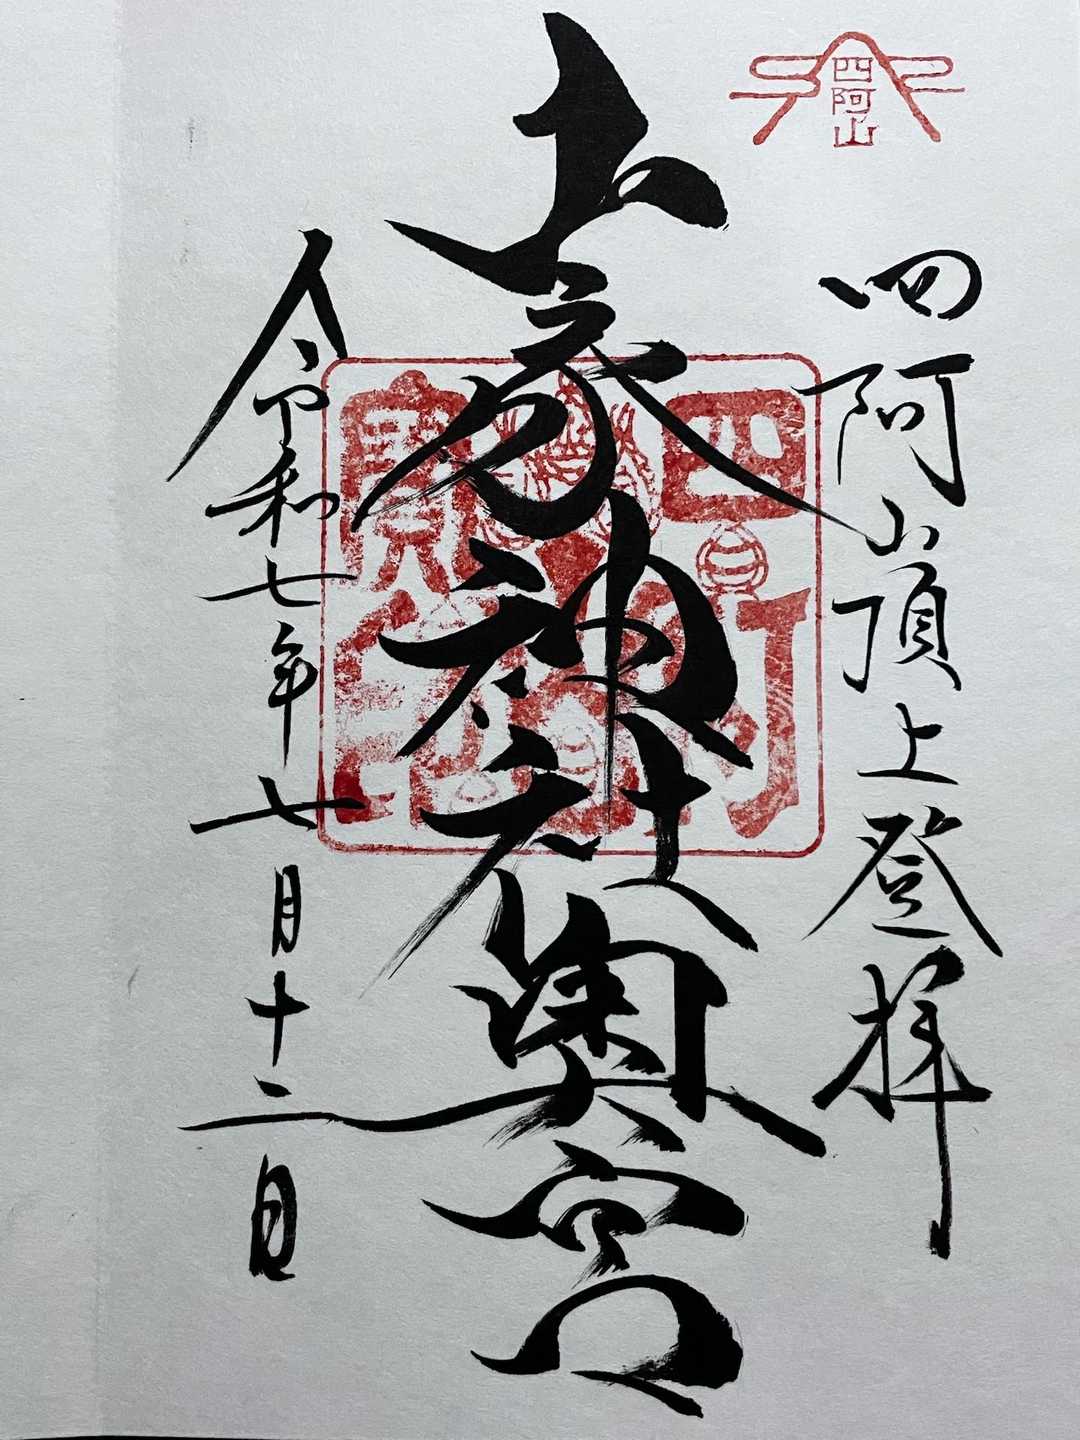 四阿山
四阿山頂上登拝
山家神社奥宮
令和七年七月十二日
寶印